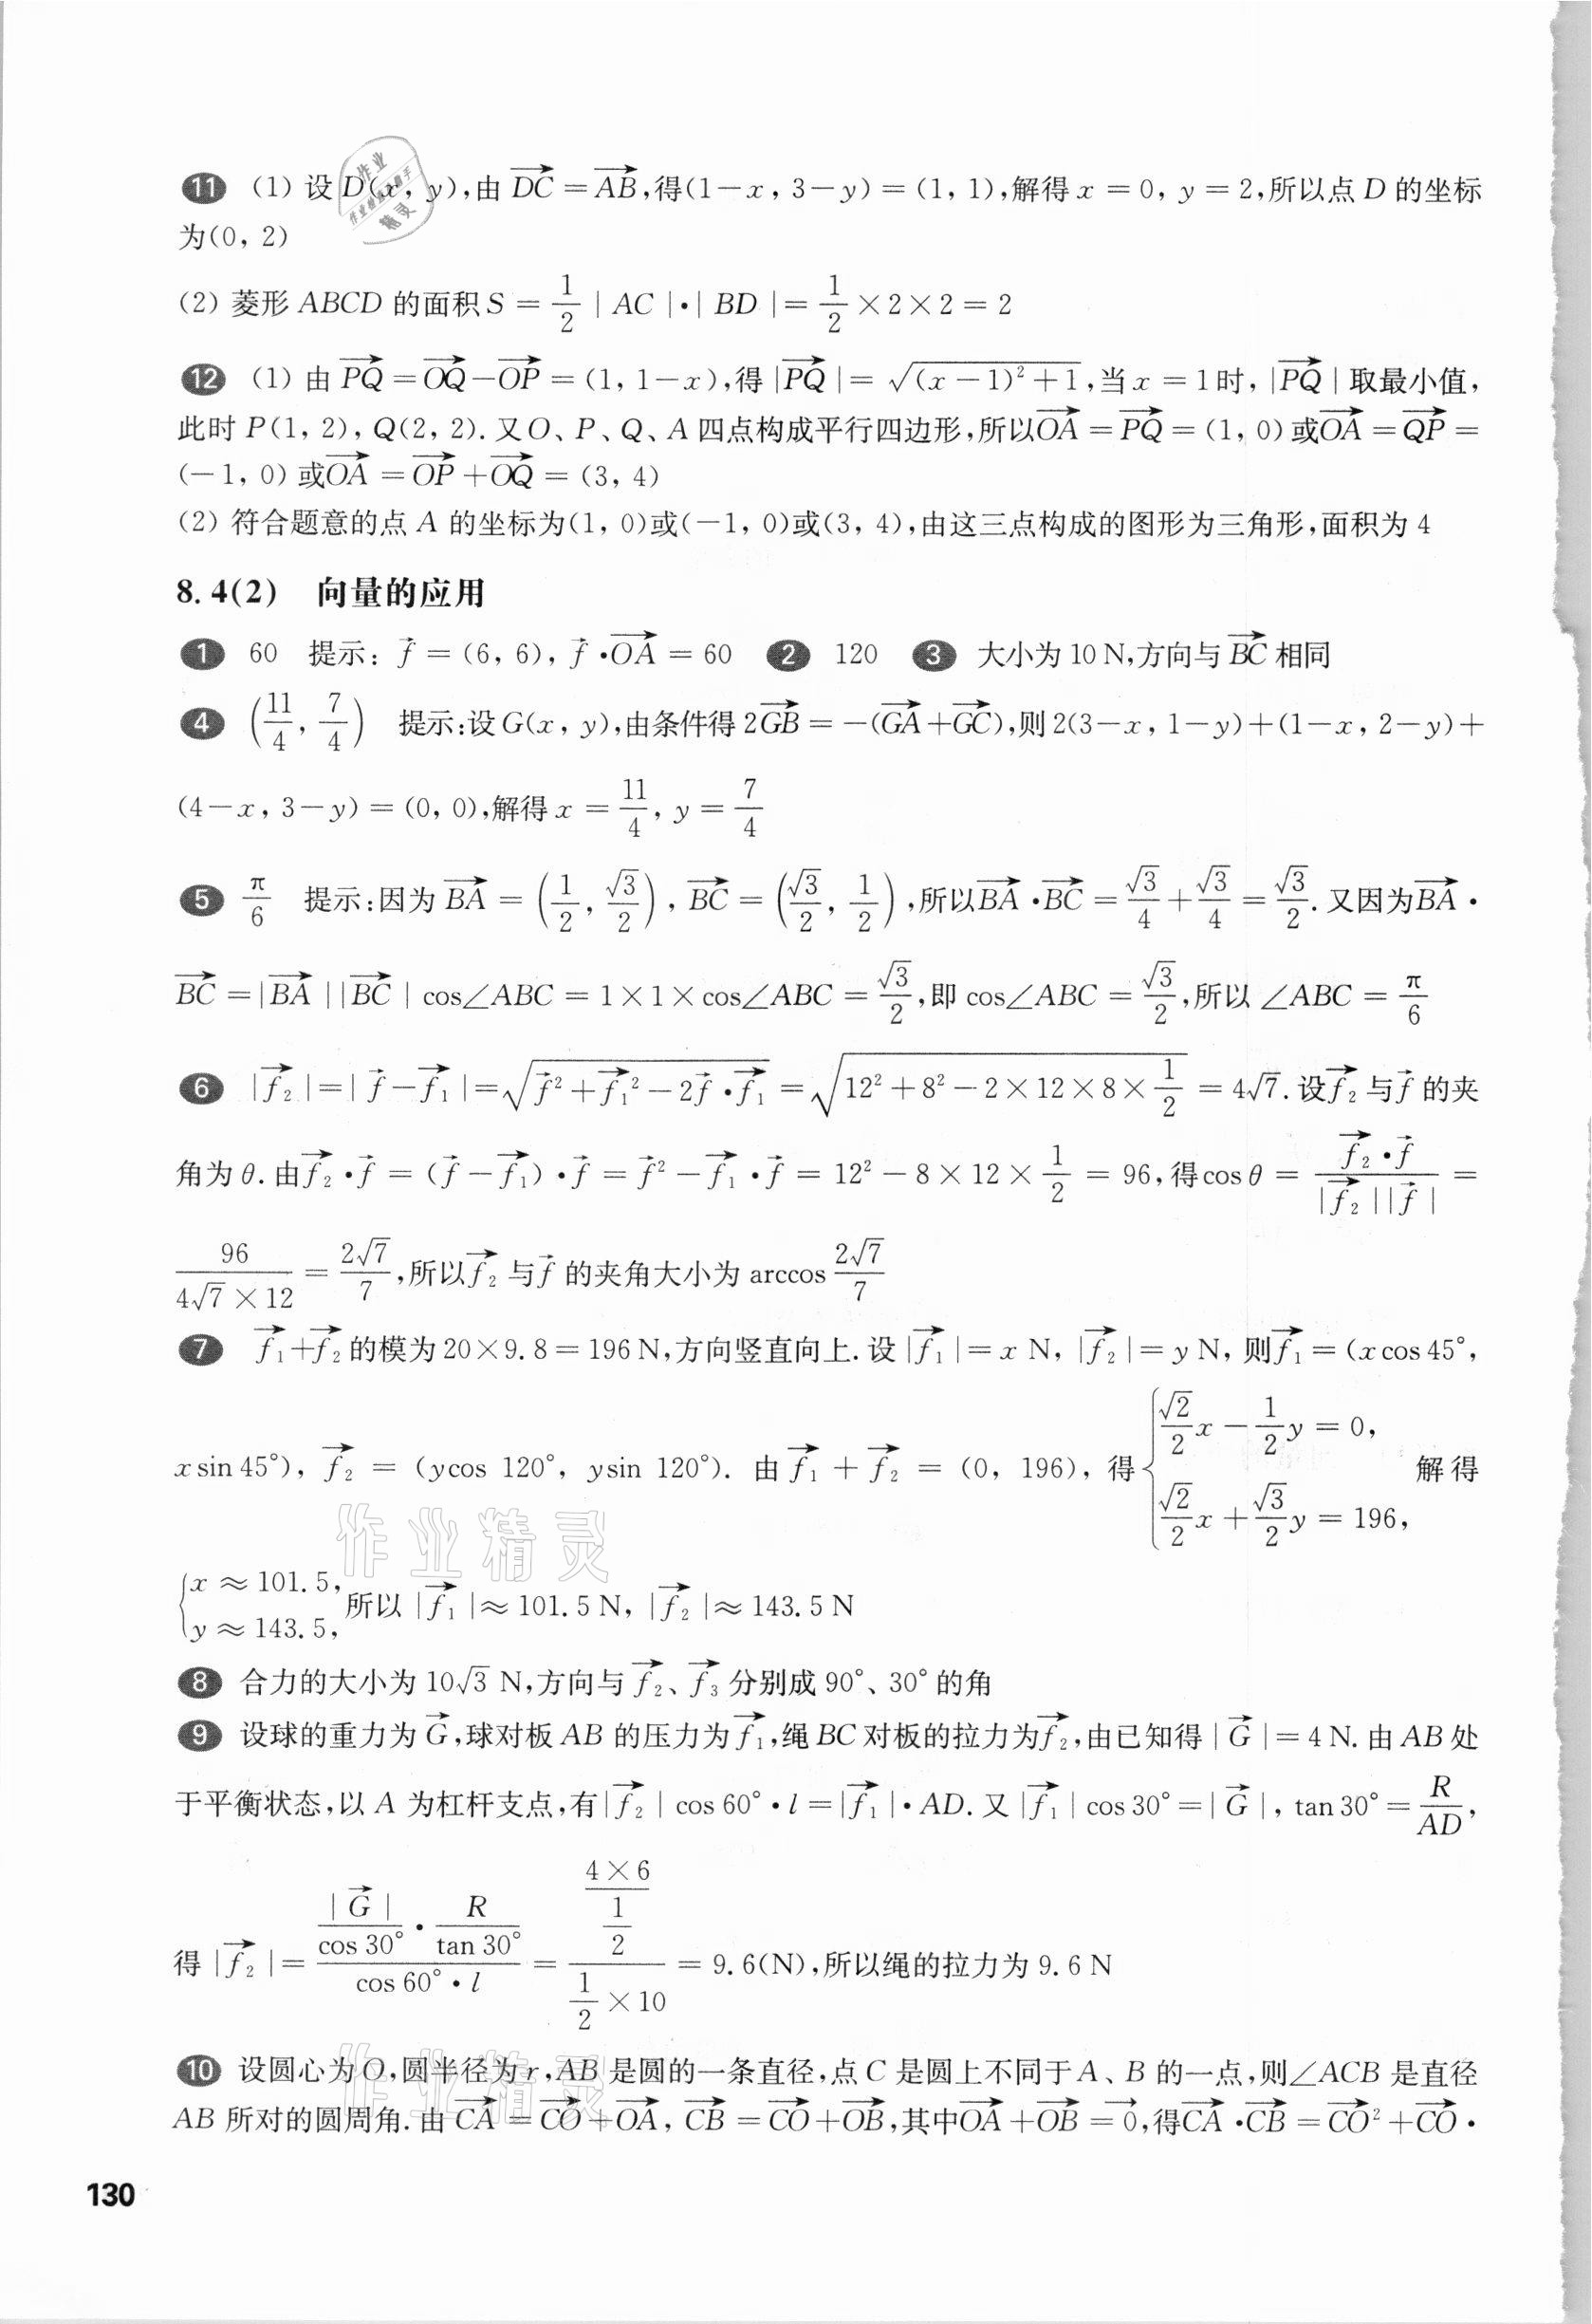 11 (1) 设 D(x, y),由 $\overrightarrow{DC}=\overrightarrow{AB}$,得(1-x, 3-y)=(1, 1),解得 x=0, y=2,所以点 D 的坐标
为(0, 2)
(2) 菱形 ABCD 的面积 $S=\frac{1}{2}|AC|\cdot|BD|=\frac{1}{2}\times2\times2=2$
12 (1) 由 $\overrightarrow{PQ}=\overrightarrow{OQ}-\overrightarrow{OP}=(1, 1-x)$,得 $|\overrightarrow{PQ}|=\sqrt{(x-1)^2+1}$,当 x=1时, $|\overrightarrow{PQ}|$ 取最小值,
此时 P(1, 2), Q(2, 2). 又O、P、Q、A 四点构成平行四边形,所以$\overrightarrow{OA}=\overrightarrow{PQ}=(1, 0)$或$\overrightarrow{OA}=\overrightarrow{QP}=$
(-1, 0) 或$\overrightarrow{OA}=\overrightarrow{OP}+\overrightarrow{OQ}=(3, 4)$
(2) 符合题意的点 A 的坐标为(1, 0)或(-1, 0)或(3, 4),由这三点构成的图形为三角形,面积为 4
8.4(2) 向量的应用
1 60 提示: $\vec{f}=(6, 6), \vec{f}\cdot\overrightarrow{OA}=60$ 2 120 3 大小为 10 N,方向与 $\overrightarrow{BC}$ 相同
4 $\left(\frac{11}{4}, \frac{7}{4}\right)$ 提示:设 G(x, y),由条件得 $2\overrightarrow{GB}=-(\overrightarrow{GA}+\overrightarrow{GC})$,则 2(3-x, 1-y)+(1-x, 2-y)+
(4-x, 3-y)=(0, 0),解得 $x=\frac{11}{4}, y=\frac{7}{4}$
5 $\frac{π}{6}$ 提示:因为 $\overrightarrow{BA}=\left(\frac{1}{2}, \frac{\sqrt{3}}{2}\right), \overrightarrow{BC}=\left(\frac{\sqrt{3}}{2}, \frac{1}{2}\right)$,所以$\overrightarrow{BA}\cdot\overrightarrow{BC}=\frac{\sqrt{3}}{4}+\frac{\sqrt{3}}{4}=\frac{\sqrt{3}}{2}$. 又因为$\overrightarrow{BA}\cdot$
$\overrightarrow{BC}=|\overrightarrow{BA}||\overrightarrow{BC}|\cos∠ABC=1\times1\times\cos∠ABC=\frac{\sqrt{3}}{2}$,即 $\cos∠ABC=\frac{\sqrt{3}}{2}$,所以 $∠ABC=\frac{π}{6}$
6 $|\overrightarrow{f_2}|=|\vec{f}-\overrightarrow{f_1}|=\sqrt{\vec{f}^2+\overrightarrow{f_1}^2-2\vec{f}\cdot\overrightarrow{f_1}}=\sqrt{12^2+8^2-2\times12\times8\times\frac{1}{2}}=4\sqrt{7}$. 设$\overrightarrow{f_2}$与$\vec{f}$ 的夹
角为 θ. 由$\overrightarrow{f_2}\cdot\vec{f}=(\vec{f}-\overrightarrow{f_1})\cdot\vec{f}=\vec{f}^2-\overrightarrow{f_1}\cdot\vec{f}=12^2-8\times12\times\frac{1}{2}=96$,得$\cosθ=\frac{\overrightarrow{f_2}\cdot\vec{f}}{|\overrightarrow{f_2}||\vec{f}|}=$
$\frac{96}{4\sqrt{7}\times12}=\frac{2\sqrt{7}}{7}$,所以$\overrightarrow{f_2}$与$\vec{f}$ 的夹角大小为 $\arccos\frac{2\sqrt{7}}{7}$
7 $\overrightarrow{f_1}+\overrightarrow{f_2}$的模为 20×9.8=196 N,方向竖直向上. 设 $|\overrightarrow{f_1}|=x$ N, $|\overrightarrow{f_2}|=y$ N, 则$\overrightarrow{f_1}=(x\cos45°,$
$x\sin45°), \overrightarrow{f_2}=(y\cos120°, y\sin120°)$. 由 $\overrightarrow{f_1}+\overrightarrow{f_2}=(0, 196)$, 得$\begin{cases}\frac{\sqrt{2}}{2}x-\frac{1}{2}y=0,\\\frac{\sqrt{2}}{2}x+\frac{\sqrt{3}}{2}y=196,\end{cases}$ 解得
$\begin{cases}x≈101.5,\\y≈143.5,\end{cases}$所以 $|\overrightarrow{f_1}|≈101.5$ N, $|\overrightarrow{f_2}|≈143.5$ N
8 合力的大小为 $10\sqrt{3}$ N,方向与 $\overrightarrow{f_2}$、$\overrightarrow{f_3}$ 分别成 90°、30° 的角
9 设球的重力为 $\vec{G}$,球对板 AB 的压力为$\overrightarrow{f_1}$,绳 BC 对板的拉力为$\overrightarrow{f_2}$,由已知得 $|\vec{G}|=4$ N. 由 AB 处
于平衡状态,以 A 为杠杆支点,有$|\overrightarrow{f_2}|\cos60°\cdot l=|\overrightarrow{f_1}|\cdot AD$. 又 $|\overrightarrow{f_1}|\cos30°=|\vec{G}|$, $\tan30°=\frac{R}{AD}$,
得 $|\overrightarrow{f_2}|=\frac{\frac{|\vec{G}|}{\cos30°}\cdot\frac{R}{\tan30°}}{\cos60°\cdot l}=\frac{\frac{4\times6}{\frac{1}{2}}}{\frac{1}{2}\times10}=9.6$(N),所以绳的拉力为 9.6 N
10 设圆心为 O,圆半径为 r,AB 是圆的一条直径,点 C 是圆上不同于 A、B 的一点,则∠ACB 是直径
AB 所对的圆周角. 由 $\overrightarrow{CA}=\overrightarrow{CO}+\overrightarrow{OA}, \overrightarrow{CB}=\overrightarrow{CO}+\overrightarrow{OB}$,其中$\overrightarrow{OA}+\overrightarrow{OB}=\vec{0}$,得$\overrightarrow{CA}\cdot\overrightarrow{CB}=\overrightarrow{CO}^2+\overrightarrow{CO}\cdot$
130
作业精灵
作业精灵